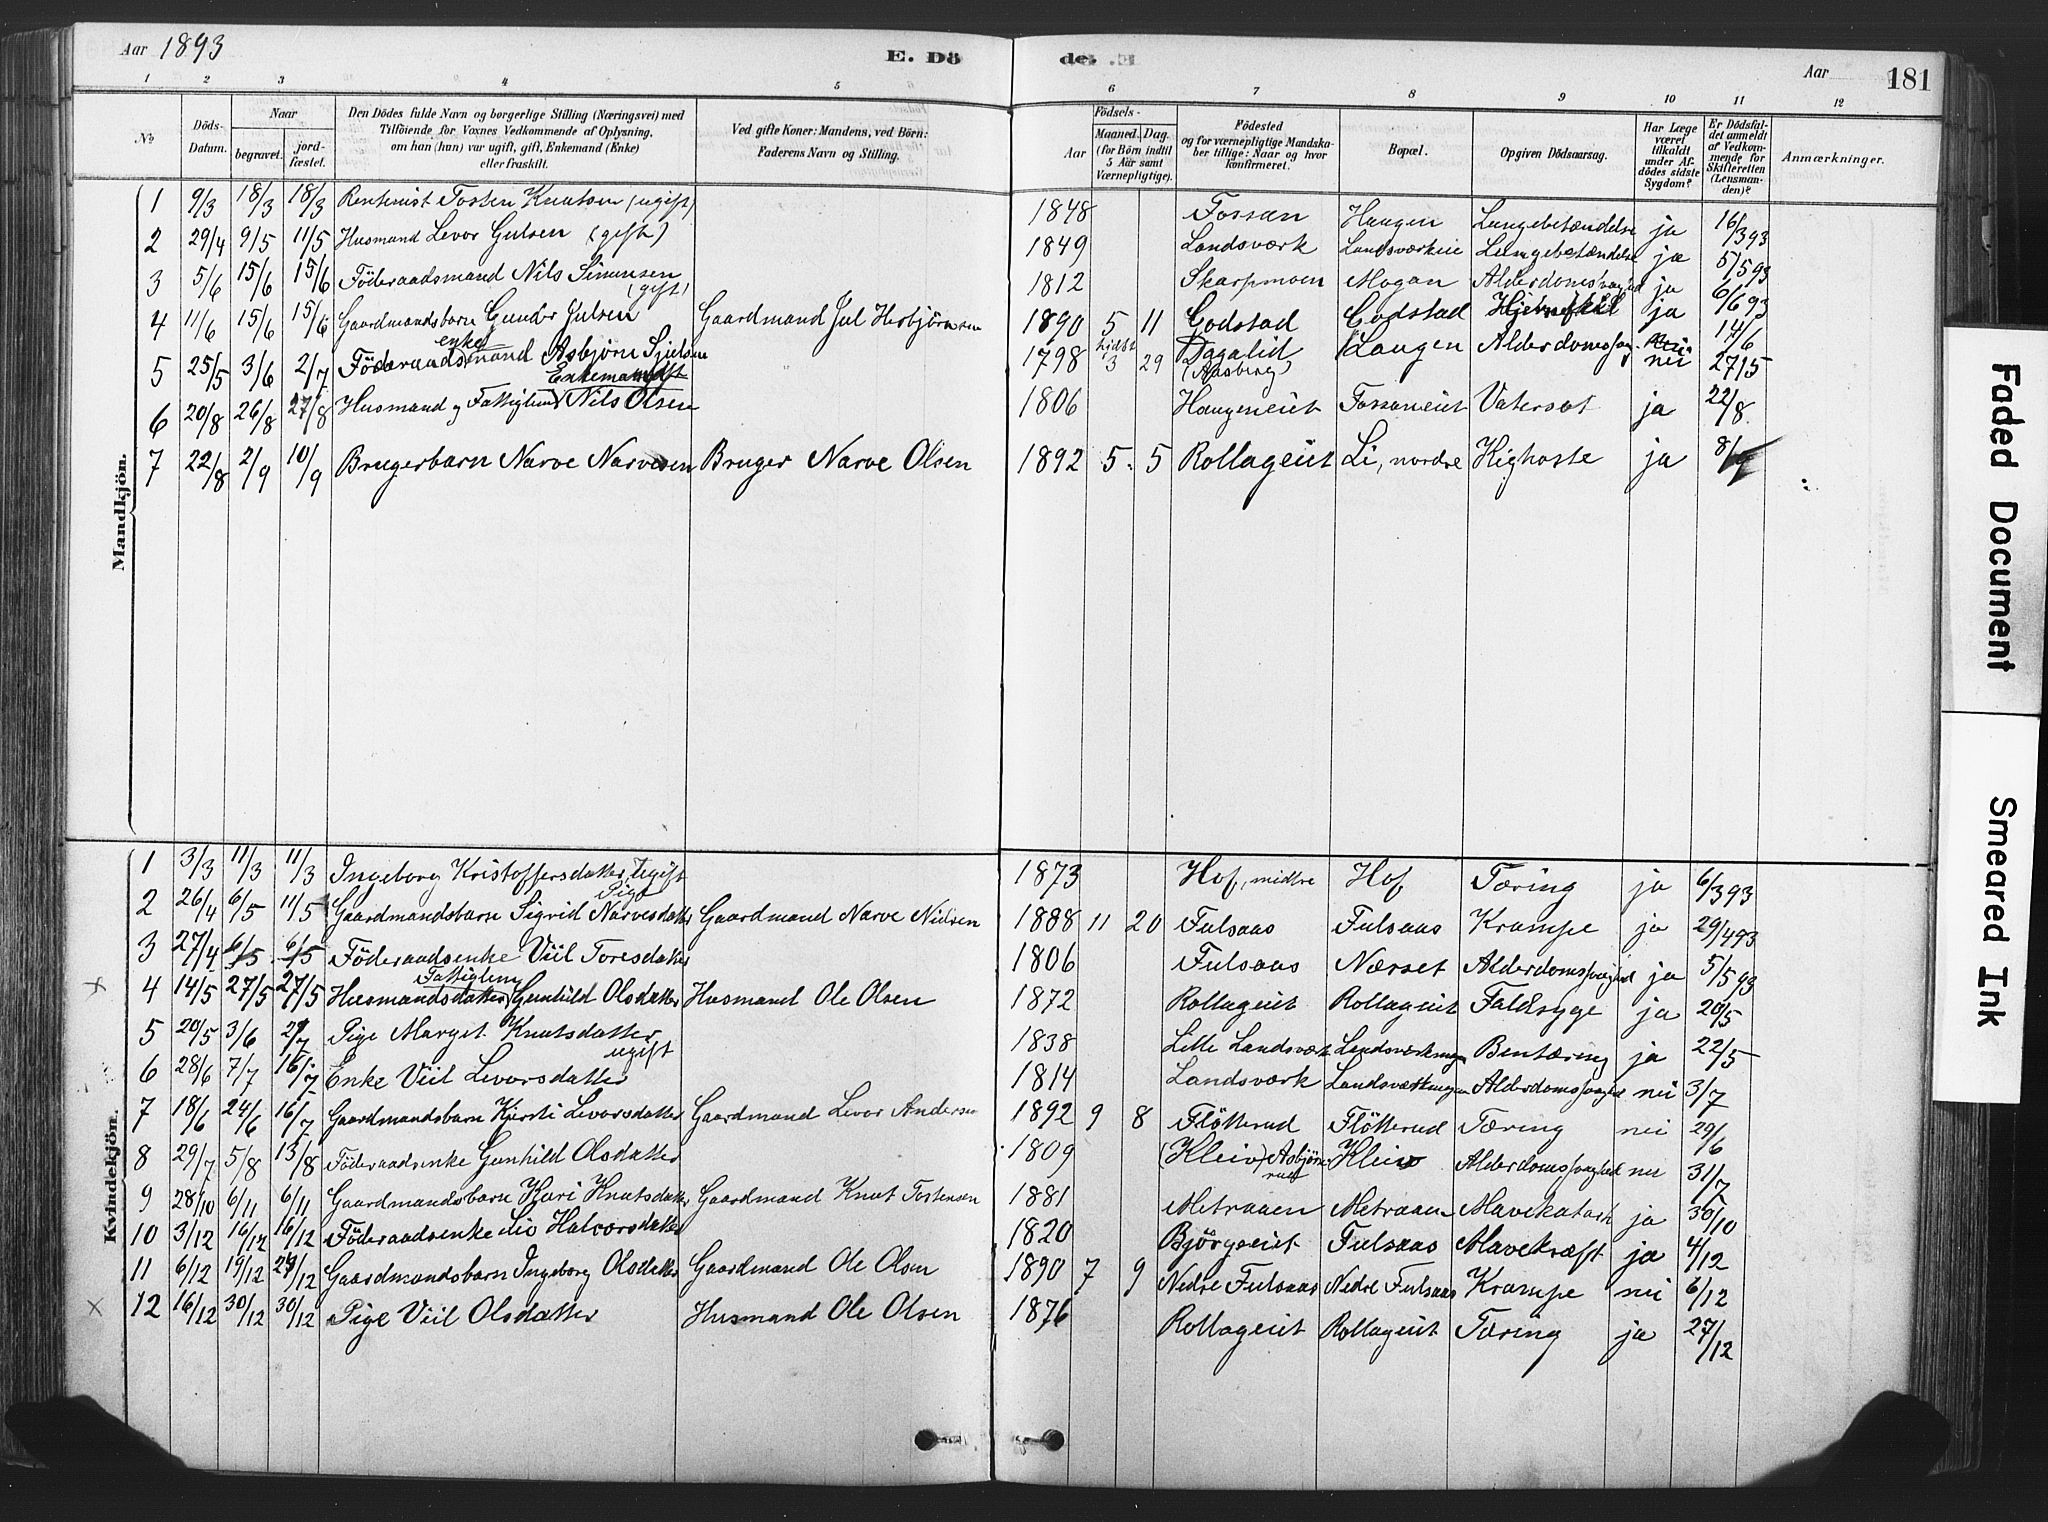 Aar 1893
E. Dö
de.
Aar
181
1 2 3 4 5 6 7 8 9 10 11 12
No
Döds-Datum.
Naar
begravet.
jord-fæstet.
Den Dödes fulde Navn og borgerlige Stilling (Næringsvei) med
Tilföiende for Voxnes Vedkommende af Oplysning,
om han (hun) var ugift, gift, Enkemand (Enke)
eller fraskilt.
Ved gifte Koner: Mandens, ved Börn:
Faderens Navn og Stilling.
Födsels-
Aar
Maaned. Dag.
(for Börn indtil
5 Aar samt
Værnepligtige).
Födested
og for værnepligtige Mandska-
ber tillige: Naar og hvor
konfirmeret.
Bopæl.
Opgiven Dödsaarsag.
Har Læge
været
tilkaldt
under Af-
dödes sidste
Sygdom?
Er Dödsfal-
det anmeldt
af Vedkom-
mende for
Skifteretten
(Lensman-
den)?
Anmærkninger.
Mandkjön.
1 9/3 18/3 18/3 Rentenist Tosten Knutsen (ugift) 1848 Fossan Haugen Lungebetændelse ja 16/3 93
2 29/4 9/5 11/5 Husmand Levor Gulsen (gift) 1849 Landsværk Landsværkeie Lungebetændelse ja 5/5 93
3 5/6 15/6 15/6 Föderaadsmand Nils Simensen (gift) 1812 Skarpmoen Mogan Alderdomssvaghed ja 6/6 93
4 11/6 15/6 15/6 Gaardmandsbarn Gunder Julsen Gaardmand Jul Herbjörnsen 1890 5 11 Godstad Godstad ja 14/6
5 25/5 3/6 2/7 Föderaadsmand enke Asbjörn 1798 3 29 Dagalid (Aasberg) Haugen Alderdomssvag. nei 27/5
6 20/8 26/8 27/8 Husmand og Fattiglem Enkemand Nils Olsen 1806 Haugeneiet Fossaneiet Vatersot ja 22/8
7 22/8 2/9 10/9 Brugerbarn Narve Narvesen Bruger Narve Olsen 1892 5 5 Rollageiet Li, nordre Kighoste ja
Kvindekjön.
1 3/3 11/3 11/3 Ingeborg Kristoffersdatter, ugift Pige 1873 Hof, midtre Hof Tæring ja 6/3 93
2 26/4 6/5 11/5 Gaardmandsbarn Sigrid Narvesdatter Gaardmand Narve Nielsen 1888 11 20 Fulsaas Fulsaas Krampe ja 29/4 93
3 27/4 6/5 6/5 Föderaadsenke Viil Toresdatter 1806 Fulsaas Nærset Alderdomssvaghed ja 5/5 93
x 4 14/5 27/5 27/5 Husmandsdatter Fattiglem Gunhild Olsdatter Husmand Ole Olsen 1872 Rollageiet Rollageiet Faldsyge ja 20/5
5 20/5 3/6 2/7 Pige Marget Knutsdatter ugift 1838 Lille Landsværk Landsværkeien Bentæring ja 22/5
6 28/6 7/7 16/7 Enke Viil Levorsdatter 1814 Landsværk Landsværkeien Alderdomssvaghed nei 3/7
7 18/6 24/6 16/7 Gaardmandsbarn Kirsti Levorsdatter Gaardmand Levor Andersen 1892 9 8 Flötterud Flötterud Tæring nei 29/6
8 29/7 5/8 13/8 Föderaadsenke Gunhild Olsdatter 1809 (Kleiv) Asbjörnrud Kleiv Alderdomssvaghed nei 31/7
9 28/10 6/11 6/11 Gaardmandsbarn Kari Knutsdatter Gaardmand Knut Tostensen 1881 Metraaen Metraaen Mavekatarh ja 30/10
10 3/12 16/12 16/12 Föderaadsenke Liv Halvorsdatter 1820 Björgeeiet Fulsaas Mavekræft ja 4/12
11 6/12 19/12 29/12 Gaardmandsbarn Ingeborg Olsdatter Gaardmand Ole Olsen 1890 7 9 Nedre Fulsaas Nedre Fulsaas Krampe nei 6/12
x 12 16/12 30/12 30/12 Pige Viil Olsdatter Husmand Ole Olsen 1876 Rollageiet Rollageiet Tæring ja 27/12
Faded Document
Smeared Ink